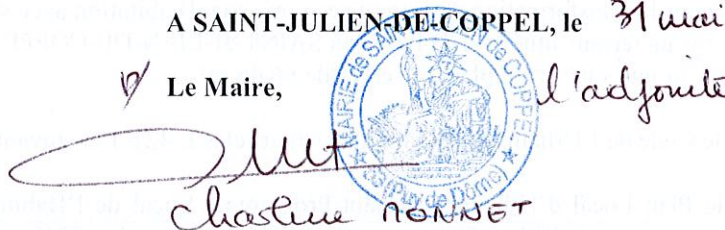 A SAINT-JULIEN-DE-COPPEL, le 31 mai
P/ Le Maire,
l'adjointe
MAIRIE de SAINT-JULIEN de COPPEL
(Puy de Dôme)
Charline MONNET